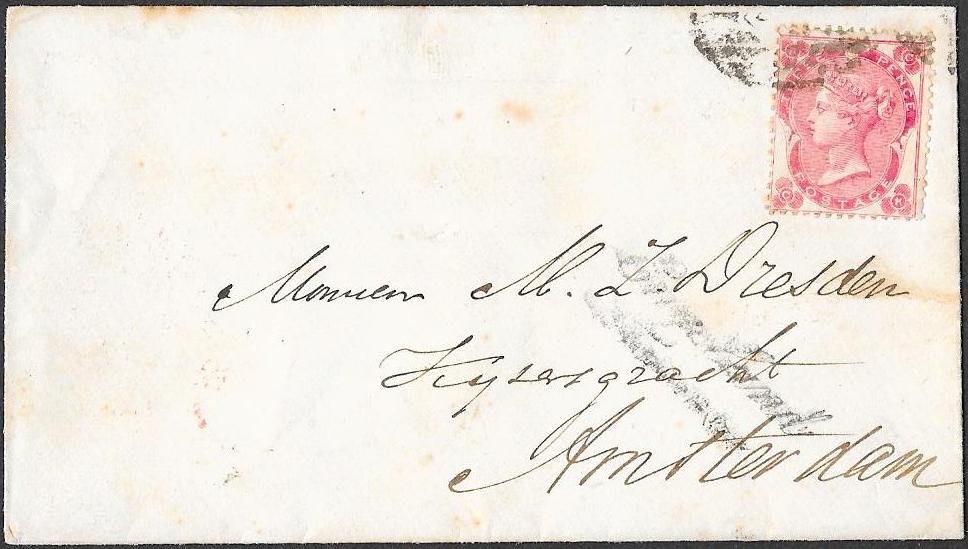 PENCE
POSTAGE
C K
Monsieur M. Z. Dresden
Kyzersgracht
Amsterdam